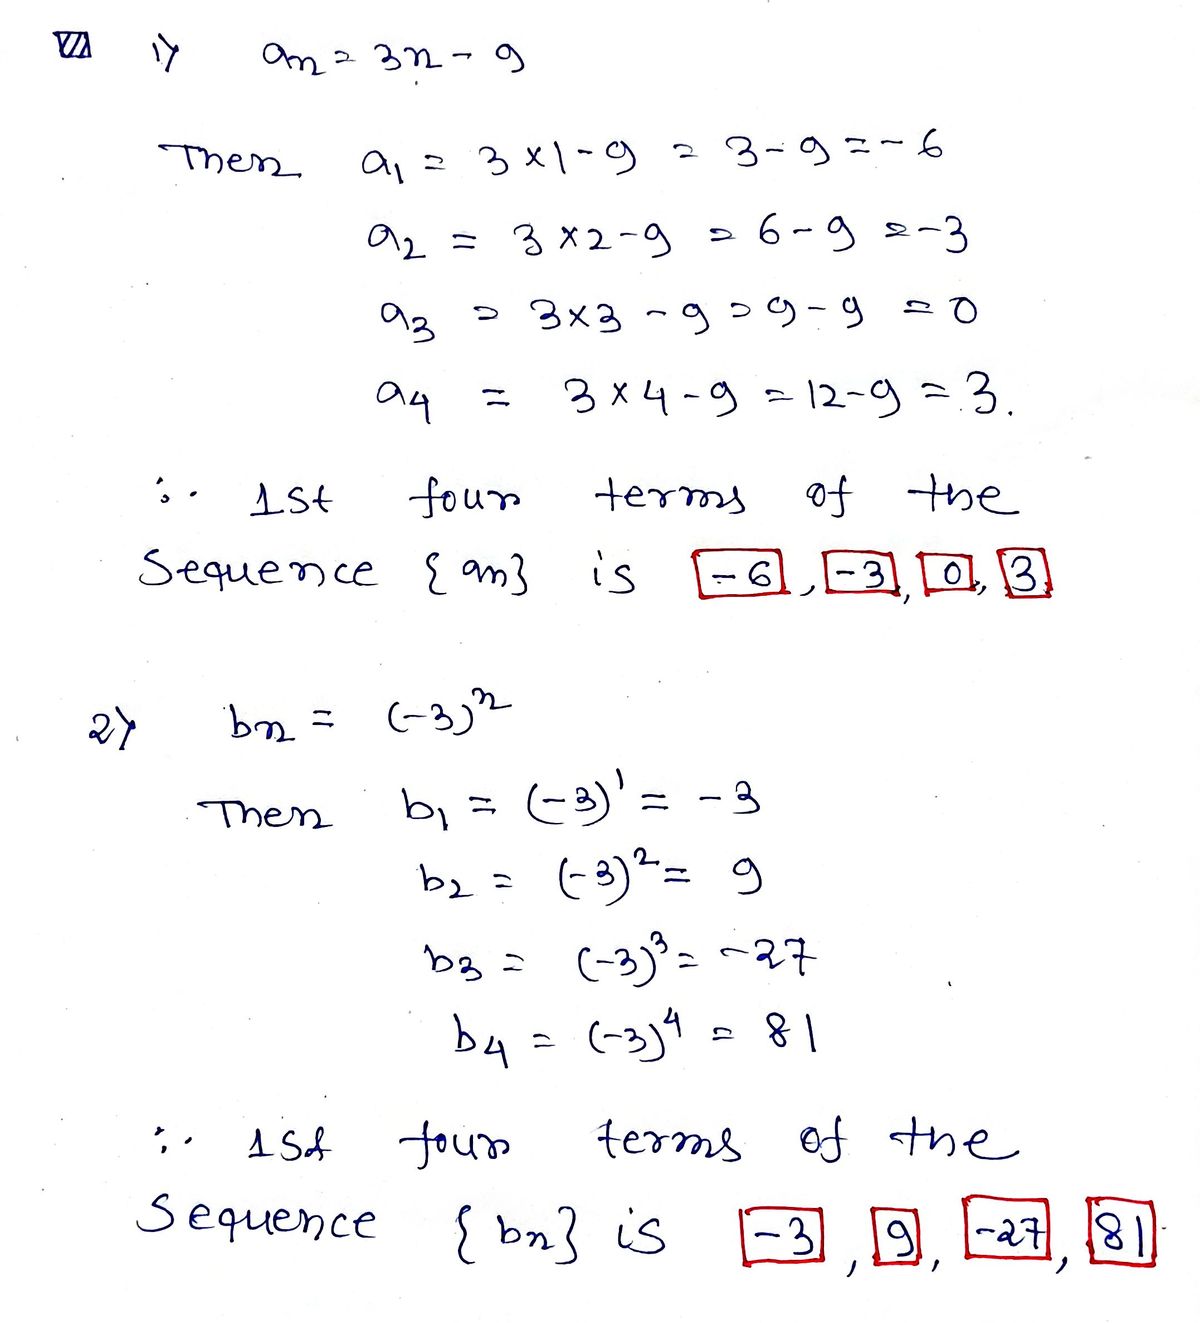 1) an = 3n - 9
Then a1 = 3×1-9 = 3-9 = -6
a2 = 3×2-9 = 6-9 = -3
a3 = 3×3-9 = 9-9 = 0
a4 = 3×4-9 = 12-9 = 3.
∴ 1st four terms of the
Sequence {an} is -6, -3, 0, 3
2) bn = (-3)^n
Then b1 = (-3)^1 = -3
b2 = (-3)^2 = 9
b3 = (-3)^3 = -27
b4 = (-3)^4 = 81
∴ 1st four terms of the
Sequence {bn} is -3, 9, -27, 81